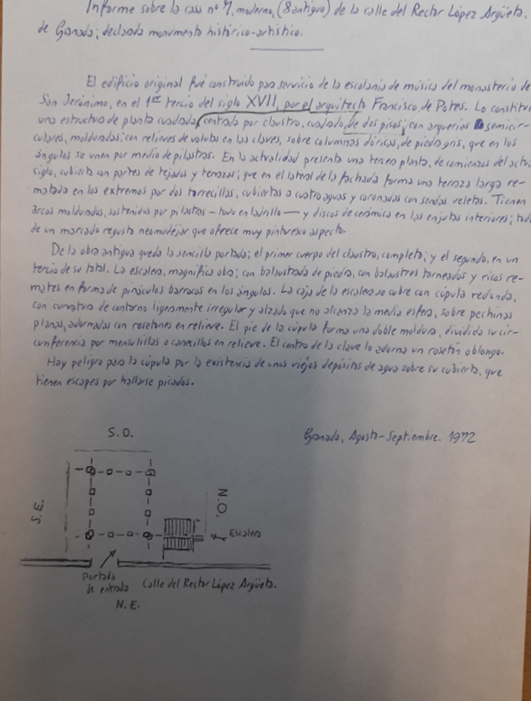 Informe sobre la casa nº 7, moderno, (8 antiguo) de la calle del Rector López Argüeta,
de Granada; declarada monumento histórico-artístico.
El edificio original fué construido para servicio de la escolanía de música del monasterio de
San Jerónimo, en el 1er tercio del siglo XVII, por el arquitecto Francisco de Potes. Lo constituí
una estructura de planta cuadrada, centrada por claustro, cuadrado, de dos pisos, con arquerías semicir-
culares, molduradas; con relieves de voluta en las claves, sobre columnas dóricas, de piedra gris, que en los
ángulos se unen por medio de pilastras. En la actualidad presenta una tercera planta, de comienzos del actu
siglo, cubierta con partes de tejados y terrazas; que en el lateral de la fachada forma una terraza larga re-
matada en los extremos por dos torrecillas, cubiertas a cuatro aguas y coronadas con sendas veletas. Tienen
arcos moldurados, sostenidos por pilastras — todo en ladrillo — y discos de cerámica en las enjutas interiores; tod
de un marcado regusto neomudéjar que ofrece muy pintoresco aspecto.
De la obra antigua queda la sencilla portada; el primer cuerpo del claustro, completo; y el segundo, en un
tercio de su total. La escalera, magnífica obra; con balaustrada de piedra, con balaustres torneados y ricos re-
mates en forma de pináculos barrocos en los ángulos. La caja de la escalera se cubre con cúpula redonda,
con curvatura de contorno ligeramente irregular y alzado que no alcanza la media esfera, sobre pechinas
planas, adornadas con rosetones en relieve. El pie de la cúpula forma una doble moldura, dividida su cir-
cunferencia por mensulillas o canecillos en relieve. El centro de la clave lo adorna un rosetón oblongo.
Hay peligro para la cúpula por la existencia de unos viejos depósitos de agua sobre su cubierta, que
tienen escapes por hallarse picados.
Granada, Agosto-Septiembre. 1972
S.O.
S.E.
N.O.
Escalera
Portada
de entrada
Calle del Rector López Argüeta.
N.E.